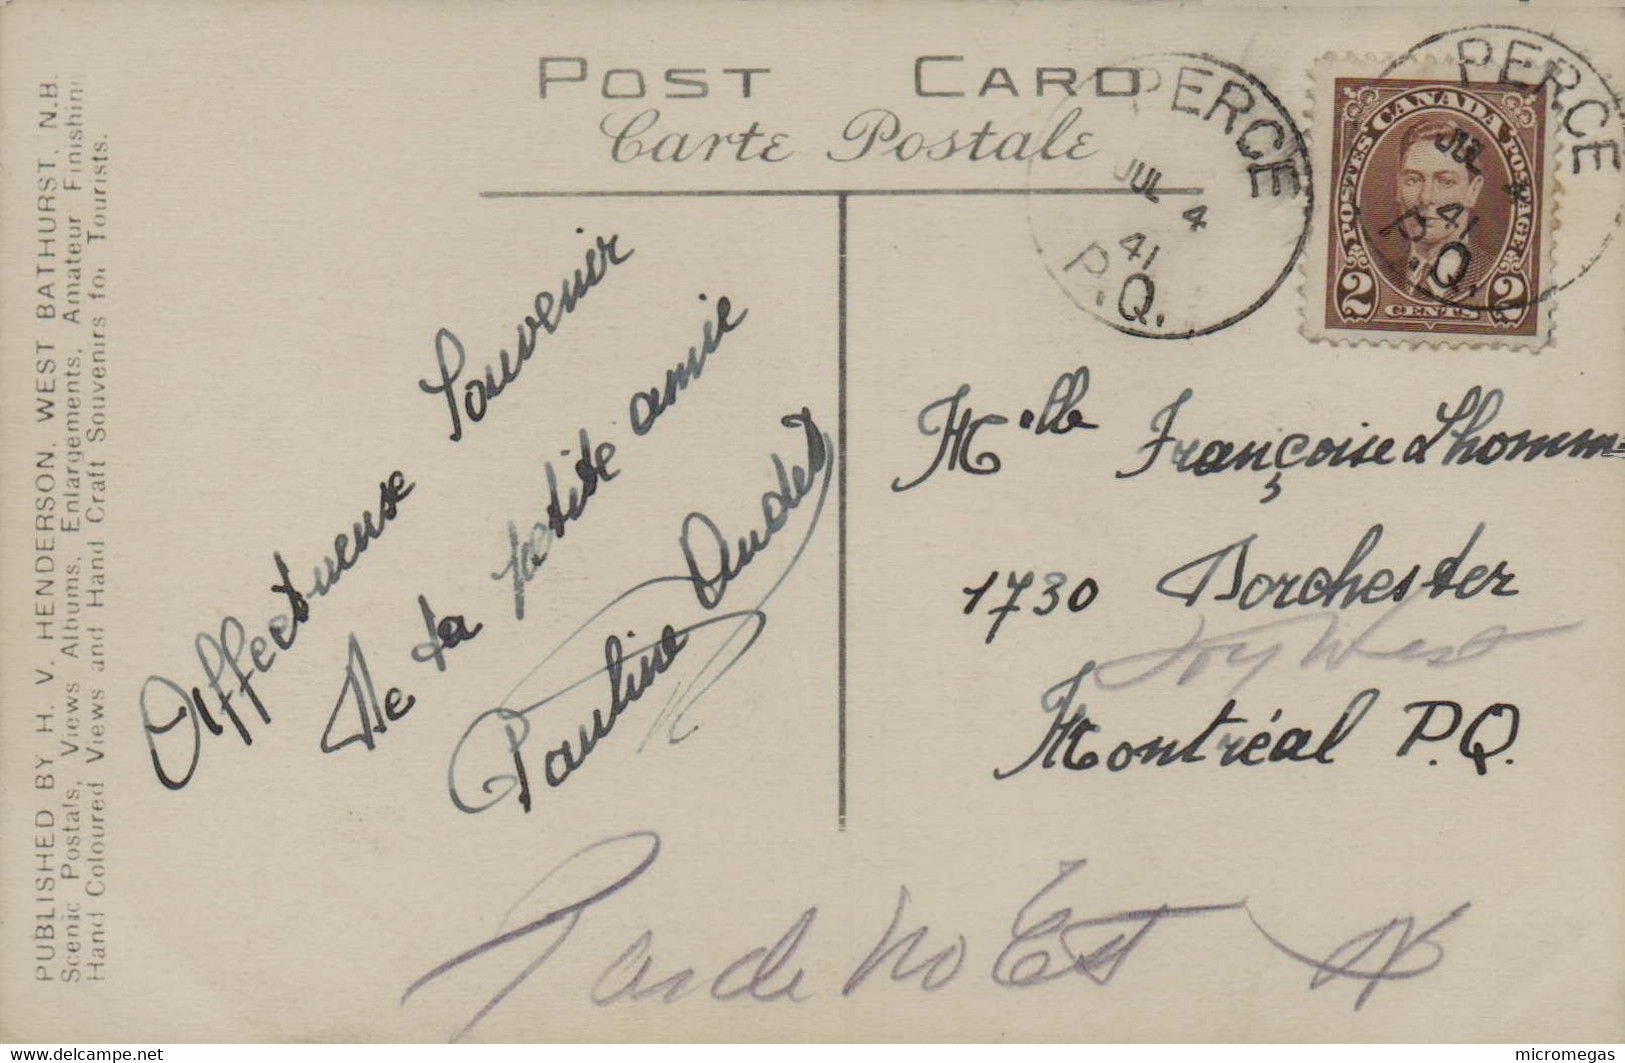 POST CARD
Carte Postale
PERCE
JUL 4
41
P.Q.
PERCE
JUL 4
41
P.Q.
POSTES CANADA POSTAGE
2 CENTS 2
Affectueuse Souvenir
De ta petite amie
Pauline Audet
Melle Françoise Lhomm-
1730 Dorchester
West
Montréal P.Q.
no Est
PUBLISHED BY H. V. HENDERSON, WEST BATHURST, N.B.
Scenic Postals, Views Albums, Enlargements, Amateur Finishing
Hand Coloured Views and Hand Craft Souvenirs for Tourists.
www.delcampe.net
micromegas